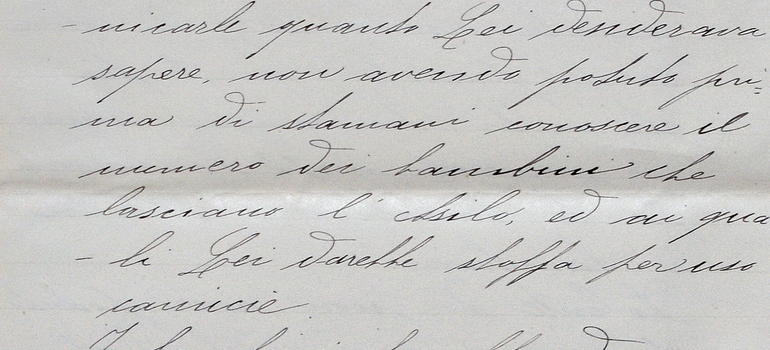 -nicarle quanto Lei desiderava
sapere, non avendo potuto pri=
ma di stamani conoscere il
numero dei bambini che
lasciano l'Asilo, ed ai qua
-li Lei darebbe stoffa per uso
camicie.